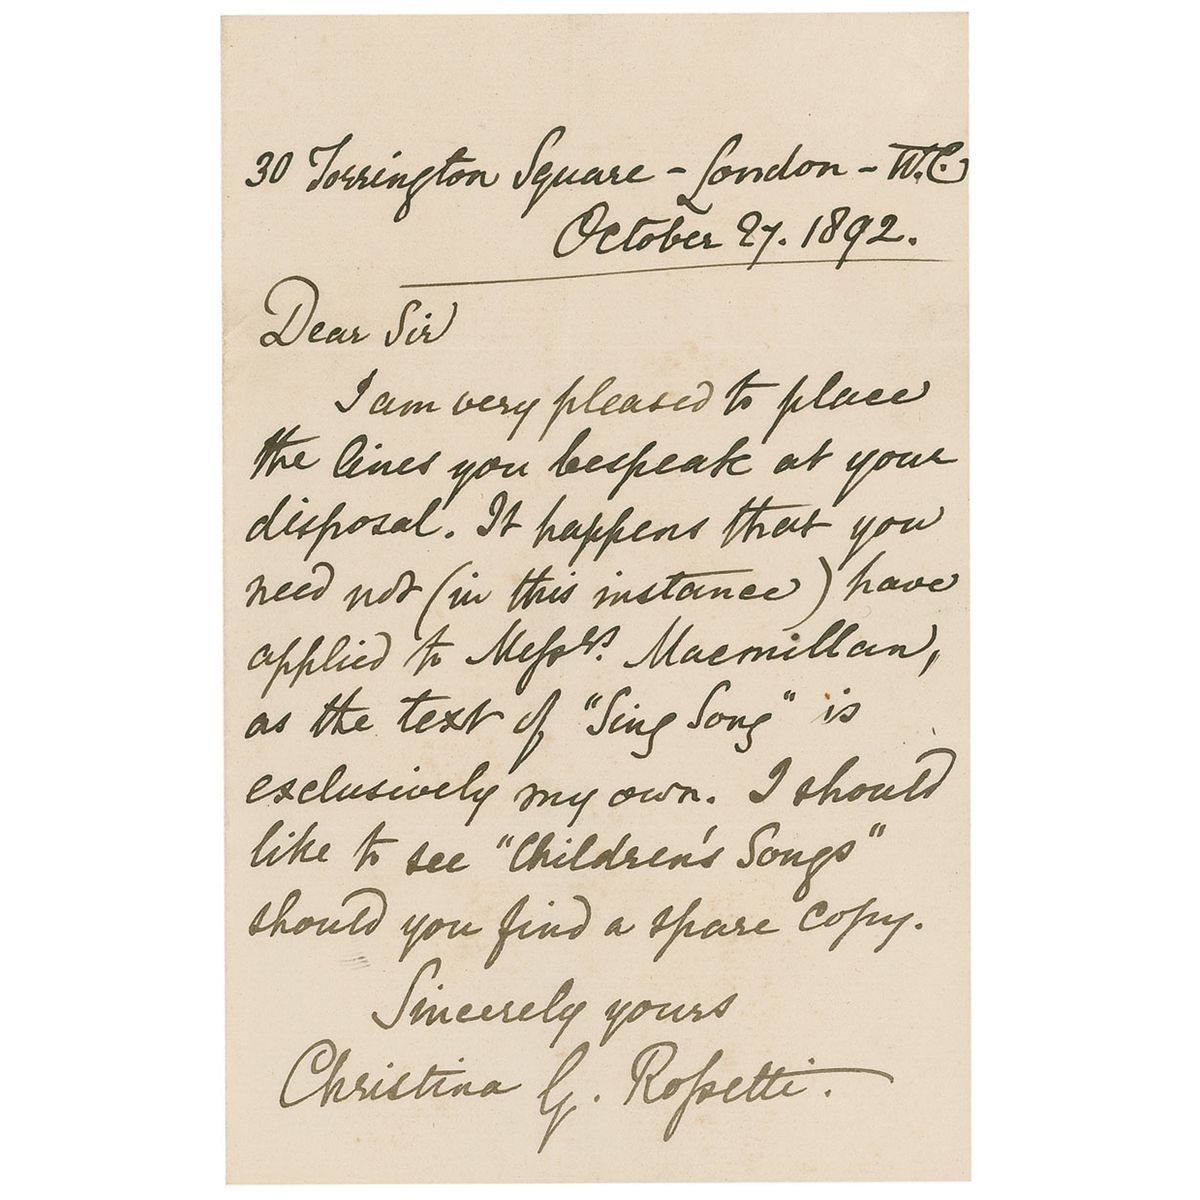 30 Torrington Square - London - W.C.
October 27. 1892.
Dear Sir
I am very pleased to place
the lines you bespeak at your
disposal. It happens that you
need not (in this instance) have
applied to Messrs. Macmillan,
as the text of "Sing Song" is
exclusively my own. I should
like to see "Children's Songs"
should you find a spare copy.
Sincerely yours
Christina G. Rossetti.